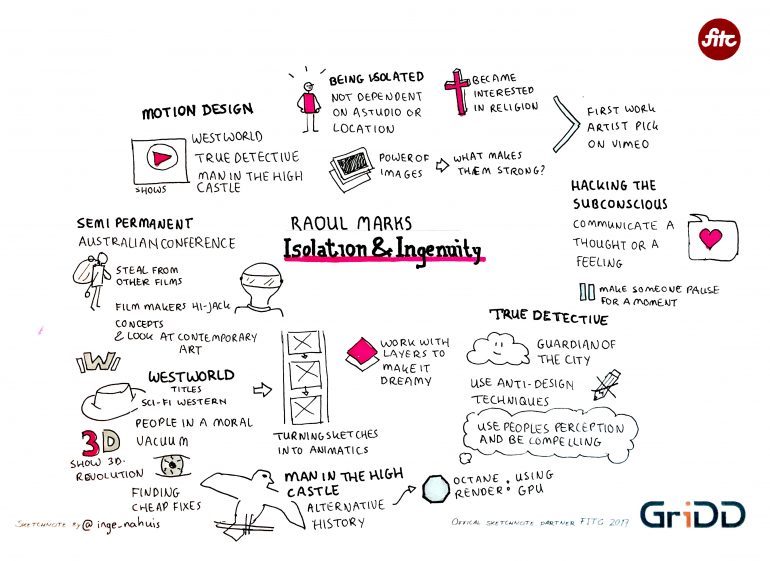 fitc
MOTION DESIGN
WESTWORLD
TRUE DETECTIVE
MAN IN THE HIGH
CASTLE
SHOWS
BEING ISOLATED
NOT DEPENDENT
ON A STUDIO OR
LOCATION
BECAME
INTERESTED
IN RELIGION
FIRST WORK
ARTIST PICK
ON VIMEO
POWER OF
IMAGES
WHAT MAKES
THEM STRONG?
HACKING THE
SUBCONSCIOUS
COMMUNICATE A
THOUGHT OR A
FEELING
MAKE SOMEONE PAUSE
FOR A MOMENT
RAOUL MARKS
Isolation & Ingenuity
SEMI PERMANENT
AUSTRALIAN CONFERENCE
STEAL FROM
OTHER FILMS
FILM MAKERS HI-JACK
CONCEPTS
& LOOK AT CONTEMPORARY
ART
W
WESTWORLD
TITLES
SCI-FI WESTERN
PEOPLE IN A MORAL
VACUUM
3D
SHOW 3D-
REVOLUTION
FINDING
CHEAP FIXES
TURNING SKETCHES
INTO ANIMATICS
WORK WITH
LAYERS TO
MAKE IT
DREAMY
TRUE DETECTIVE
GUARDIAN OF
THE CITY
USE ANTI-DESIGN
TECHNIQUES
USE PEOPLES PERCEPTION
AND BE COMPELLING
MAN IN THE HIGH
CASTLE
ALTERNATIVE
HISTORY
OCTANE : USING
RENDER : GPU
SKETCHNOTE BY @inge_nahuis
OFFICAL SKETCHNOTE PARTNER FITC 2017
GriDD